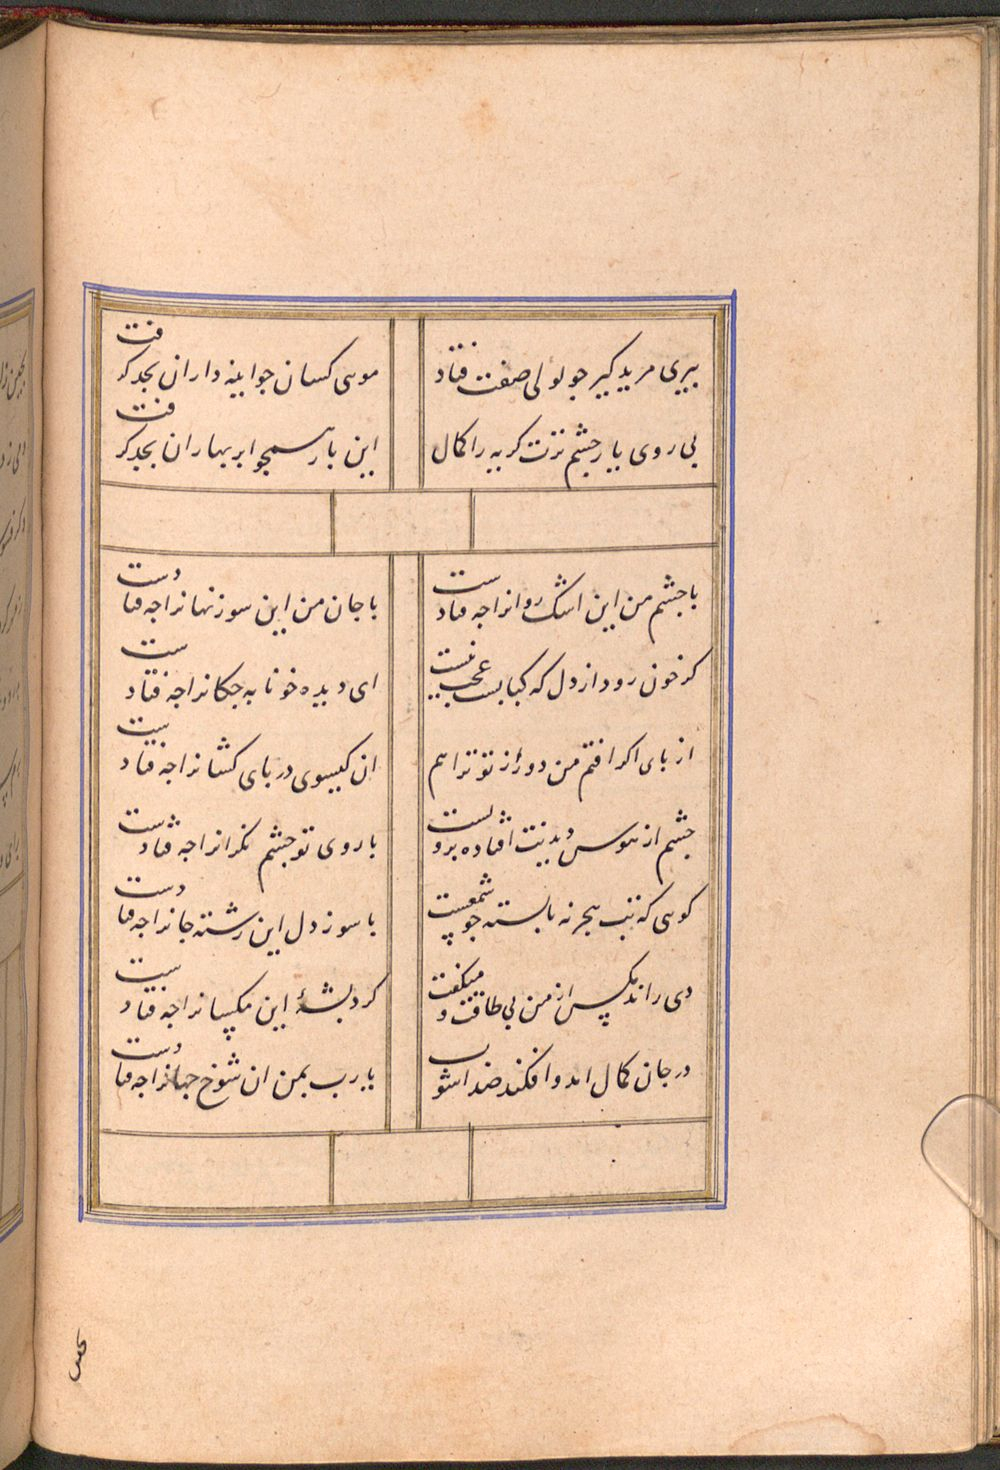 بیری مرید کیر جو لولی صفت فتاد
موسی کسان جو ابینه داران بجد کرفت
بی روی یار جشم ترت کریه را کمال
این بار همجو ابر بهاران بجد کرفت
با جشم من این اشک روانرا جه فتادست
با جان من این سوز نهانرا جه فتادست
کر خون رود از دل که کبابست عجب نیست
ای دیده خونابه جکانرا جه فتادست
از بای اکر افتم من دور از تو ترا هم
ان کیسوی در بای کشانرا جه فتادست
جشم از هوس دیدنت افتاده برویست
با روی تو جشم نکرانرا جه فتادست
کوسی که تب هجر نه بابسته جو شمعیست
با سوز دل این رشته جانرا جه فتادست
دی راند مکس از من بی طاقت و میکفت
کردبشه این مکسانرا جه فتادست
در جان کمال امد و افکند ضد اشوب
یارب بمن ان شوخ جهانرا جه فتادست